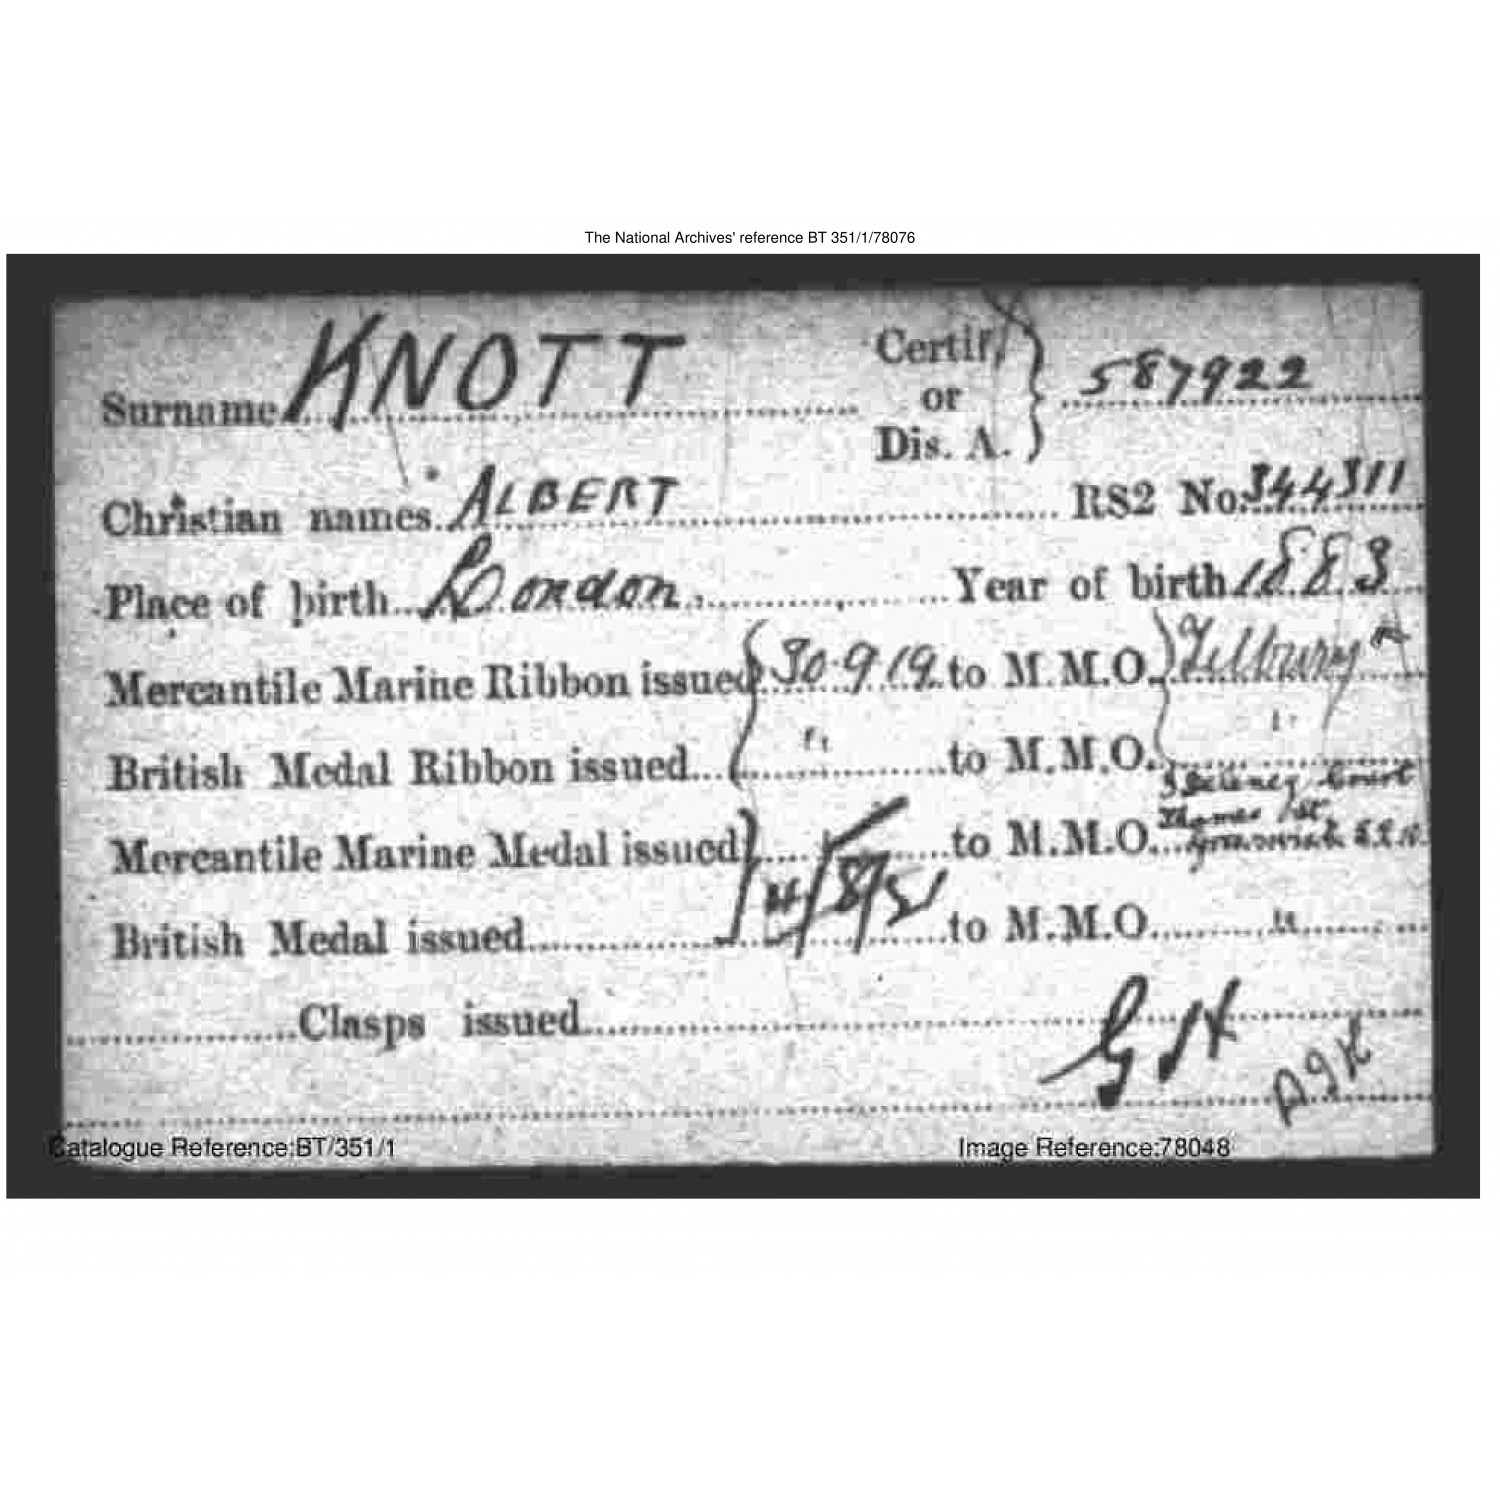 The National Archives' reference BT 351/1/78076
Surname KNOTT Certif. or Dis. A. 587922
Christian names. ALBERT RS2 No. 344311
Place of birth London. Year of birth 1883
Mercantile Marine Ribbon issued 30.9.19 to M.M.O. Tilbury
British Medal Ribbon issued " to M.M.O. "
Court
Thames St.
Mercantile Marine Medal issued to M.M.O. Greenwich S.E.10.
British Medal issued to M.M.O. "
Clasps issued
Catalogue Reference:BT/351/1 Image Reference:78048